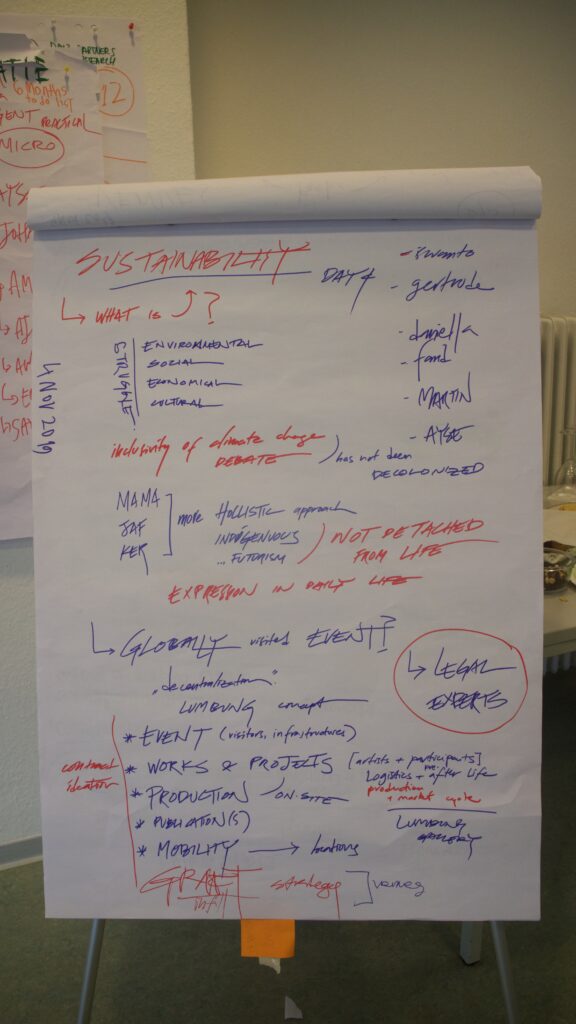 PARTNERS
6 MONTHS
to do list
12
PRACTICAL
MICRO
SUSTAINABILITY
DAY 4
- iswanto
- gertrude
- daniella
- farid
- MARTIN
- AYSE
↳ WHAT IS ?
4 NOV 2019
STRUGGLE
ENVIRONMENTAL
SOCIAL
ECONOMICAL
CULTURAL
inclusivity of climate change
DEBATE
has not been
DECOLONIZED
MAMA
JAF
KER
more HOLLISTIC approach
INDIGENOUS
... FUTURISM
NOT DETACHED
FROM LIFE
EXPRESSION IN DAILY LIFE
↳ GLOBALLY visited EVENT?
"decentralization"
LUMBUNG concept
↳ LEGAL
EXPERTS
* EVENT (visitors, infrastructures)
* WORKS & PROJECTS [artists + participants]
Logistics + after life
* PRODUCTION ON-SITE
production
+ market cycle
* PUBLICATION(S)
LUMBUNG
GALLERY
* MOBILITY → locations
strategy